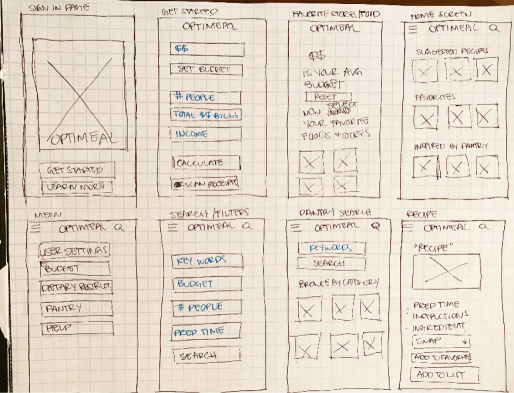 SIGN IN PAGE
OPTIMEAL
GET STARTED
LEARN MORE
GET STARTED
OPTIMEAL
$$
SET BUDGET
# PEOPLE
TOTAL $$ BILLS
INCOME
CALCULATE
SCAN RECEIPT
FAVORITE STORE/FOOD
OPTIMEAL
$$
IS YOUR AVG
BUDGET
RESET
NOW SELECT
YOUR FAVORITE
FOODS & STORES
HOME SCREEN
OPTIMEAL
SUGGESTED RECIPES
FAVORITES
INSPIRED BY PANTRY
MENU
OPTIMEAL
USER SETTINGS
BUDGET
DIETARY RESTRICT
PANTRY
HELP
SEARCH/FILTERS
OPTIMEAL
KEY WORDS
BUDGET
# PEOPLE
PREP TIME
SEARCH
PANTRY SEARCH
OPTIMEAL
KEYWORDS
SEARCH
BROWSE BY CATEGORY
RECIPE
OPTIMEAL
"RECIPE"
PREP TIME
INSTRUCTIONS
INGREDIENT
SWAP
ADD TO FAVORITES
ADD TO LIST